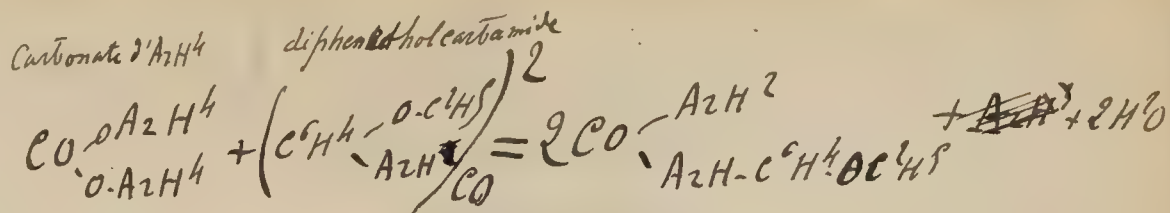 Carbonate d'AzH⁴ diphenetholcarbamide
CO O AzH⁴ O.AzH⁴ + (C⁶H⁴ O-C²H⁵ AzH)² CO = 2CO AzH² AzH-C⁶H⁴.OC²H⁵ + AzH³ + 2H²O